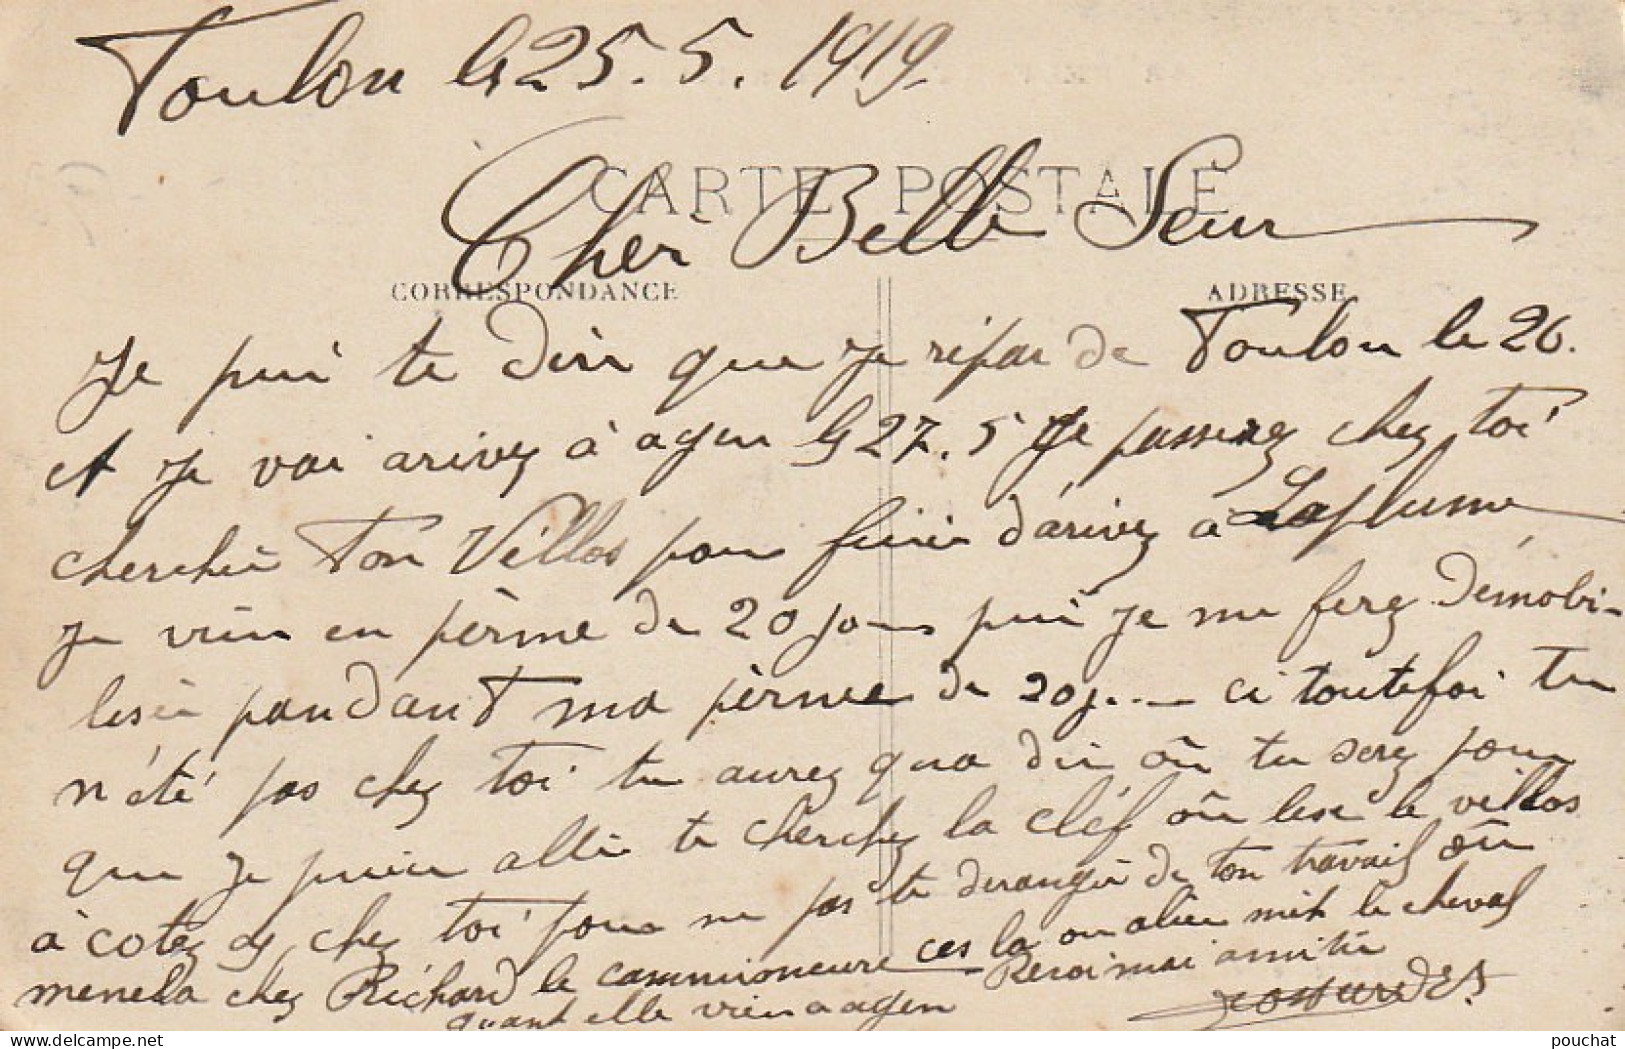 Toulon le 25.5.1919.
CARTE POSTALE
Cher Belle Seur
CORRESPONDANCE
ADRESSE
Je pui te dire que je répar de Toulon le 26.
et je vai arivez à agen le 27.5 Je passerez chez toi
cherchér ton Véllos pour finir d'arivez à Laplume
je vien en pèrme de 20 jours pui je me ferez démobi-
lisér pandant ma pèrme de 20 j... ci toutefoi tu
n'été pas chez toi tu aurez qua dir où tu serez pour
que je puise allér te cherchez la cléf où lese le véllos
à cotez de chez toi pour ne pas te derangér de ton travail où
menela chez Réchard le cammioneure ces la ou Mit le cheval
quant elle vien a agen
Recoi mai amitir